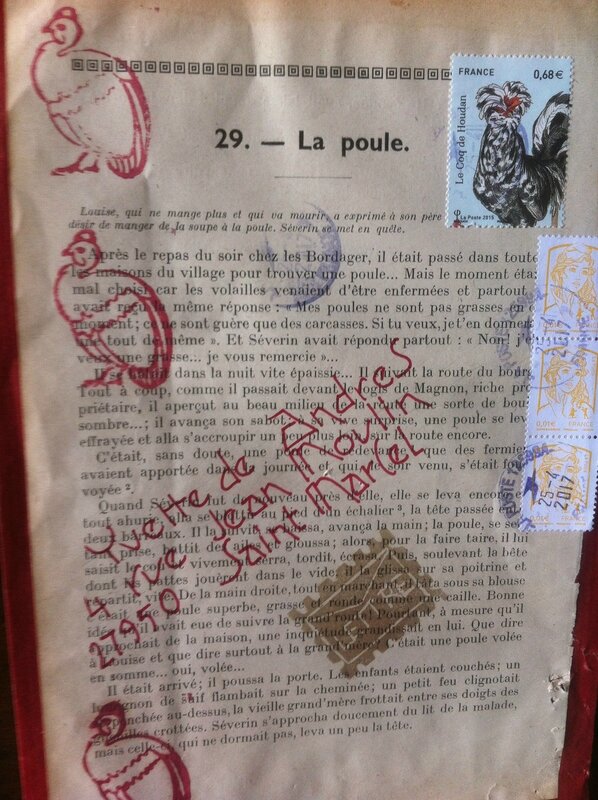 29. — La poule.
FRANCE 0,68€
Le Coq de Houdan
La Poste 2015
Louise, qui ne mange plus et qui va mourir a exprimé à son père
désir de manger de la soupe à la poule. Séverin se met en quête.
Après le repas du soir chez les Bordager, il était passé dans toute
les maisons du village pour trouver une poule... Mais le moment éta
mal choisi car les volailles venaient d'être enfermées et partout
avait reçu la même réponse : « Mes poules ne sont pas grasses en
moment ; ce ne sont guère que des carcasses. Si tu veux, je t'en donnera
une tout de même ». Et Séverin avait répondu partout : « Non ! j'e
veux une grasse... je vous remercie »...
Il se hâtait dans la nuit vite épaissie... Il suivait la route du bourg
Tout à coup, comme il passait devant le logis de Magnon, riche pro
priétaire, il aperçut au beau milieu de la route une sorte de bou
sombre... ; il avança son sabot : sa vive surprise, une poule se lev
effrayée et alla s'accroupir un plus sur la route encore.
C'était, sans doute, une que des fermier
avaient apportée dans journée qui, soir venu, s'était
voyée ².
Quand Séverin fut de nouveau près d'elle, elle se leva encore
tout ahurie, alla se au pied d'un échalier ³, la tête passée
deux barreaux. Il la suivit, se baissa, avança la main ; la poule, se se
tant prise, battit des et gloussa ; alors, pour la faire taire, il lui
saisit le cou vivement, serra, tordit, écrasa. Puis, soulevant la bête
dont les pattes jouèrent dans le vide, il la glissa sur sa poitrine et
repartit, vite. De la main droite, tout en marchant il tâta sous sa blouse
C'était une poule superbe, grasse et ronde comme une caille. Bonne
idée qu'il avait eue de suivre la grand'route ! Pourtant, à mesure qu'il
approchait de la maison, une inquiétude grandissait en lui. Que dire
à Louise et que dire surtout à la grand'mère, c'était une poule volée
en somme... oui, volée...
Il était arrivé ; il poussa la porte. Les enfants étaient couchés ; un
lumignon de suif flambait sur la cheminée ; un petit feu clignotait
penchée au-dessus, la vieille grand'mère frottait entre ses doigts des
guenilles crottées. Séverin s'approcha doucement du lit de la malade,
mais celle-ci, qui ne dormait pas, leva un peu la tête.
Yvette de Andres
4 rue Jean Moulin
27950 Saint Marcel
0,01€ FRANCE
25-4
2017